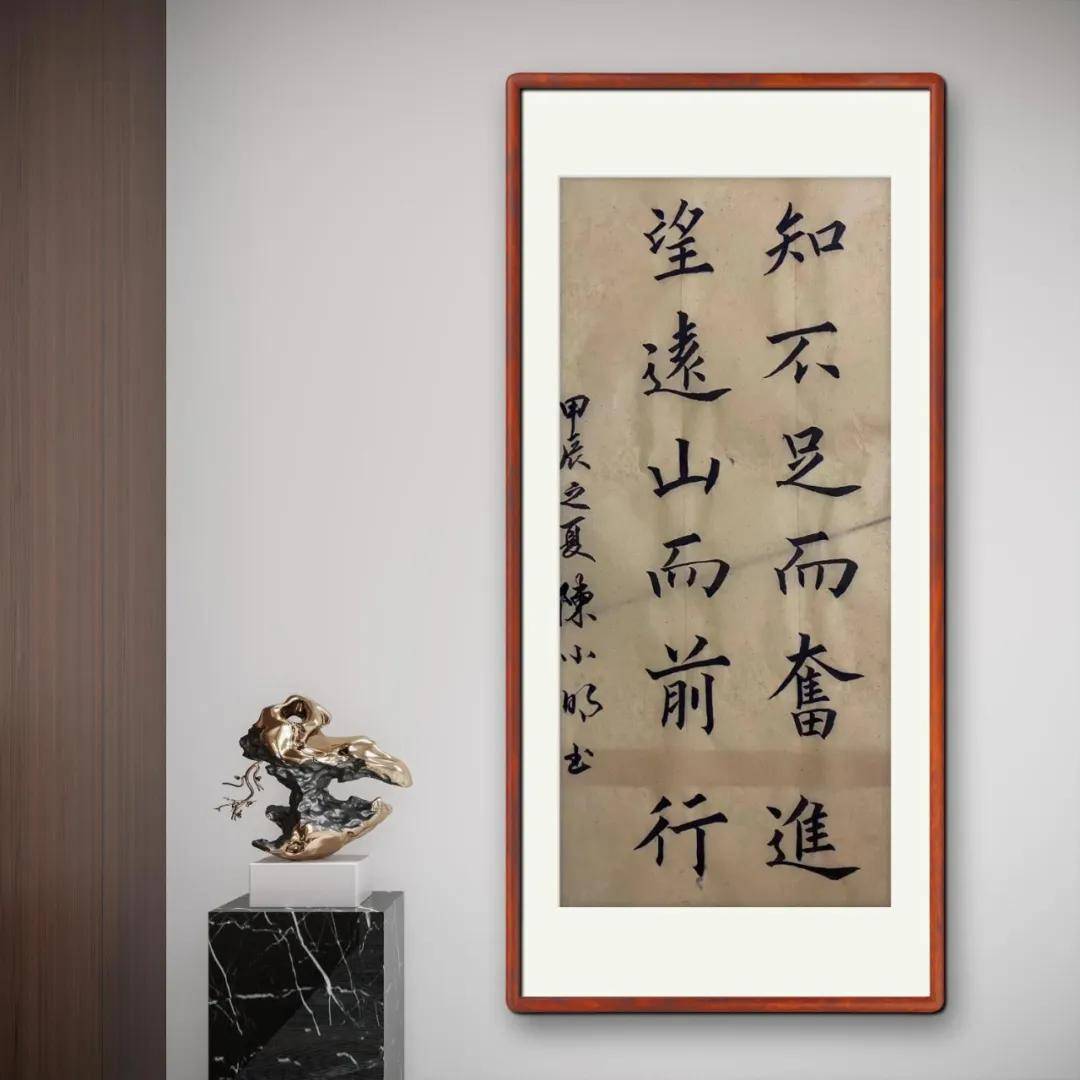 知不足而奮進
望遠山而前行
甲辰之夏陳小明书